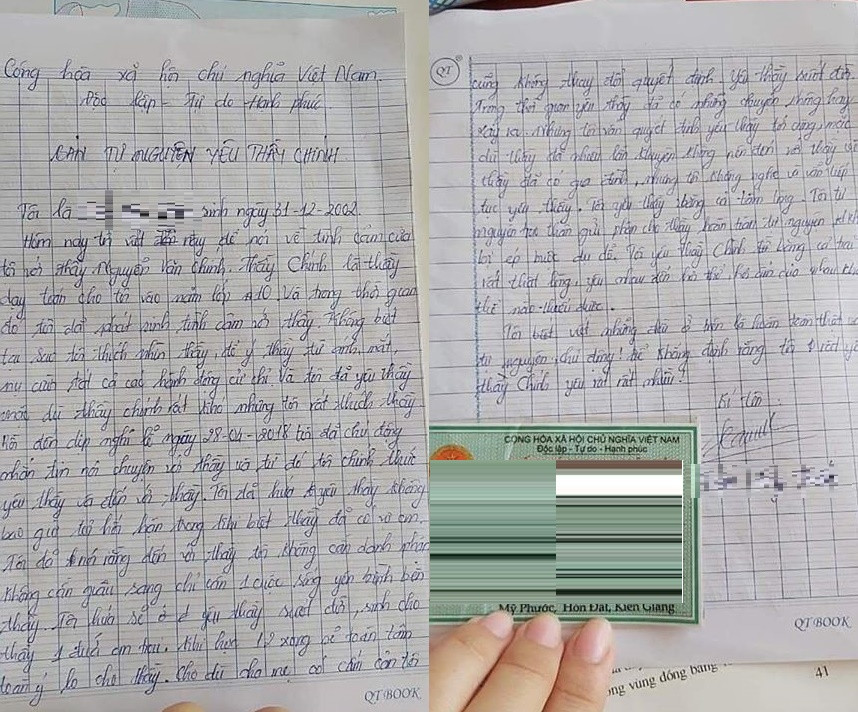 Cộng hòa xã hội chủ nghĩa Việt Nam.
Độc lập - Tự do Hạnh phúc.
BẢN TỰ NGUYỆN YÊU THẦY CHÍNH.
Tôi là sinh ngày 31-12-2002.
Hôm nay tôi viết này để nói về tình cảm của
tôi với thầy Nguyễn Văn Chính. Thầy Chính là thầy
dạy toán cho tôi vào năm lớp A10. Và trong thời gian
đó tôi đã phát sinh tình cảm với thầy. Không biết
tại sao tôi thích nhìn thầy, để ý thầy từ ánh mắt
nụ cười tất cả các hành động cử chỉ và tôi đã yêu thầy
mặc dù thầy chính rất khó nhưng tôi rất thích thầy
Và đến dịp nghỉ lễ ngày 28-04-2018 tôi đã chủ động
nhắn tin nói chuyện với thầy và từ đó tôi chính thức
yêu thầy và đến với thầy. Tôi đã hứa yêu thầy không
bao giờ tôi hối hận trong khi biết thầy đã có vợ con.
Tôi đã nói rằng đến với thầy tôi không cần danh phận
không cần giàu sang chỉ cần 1 cuộc sống yên bình bên
thầy. Tôi hứa sẽ yêu thầy suốt đời, sinh cho
thầy 1 đứa con trai. Khi học 12 xong sẽ toàn tâm
toàn ý lo cho thầy. Cho dù cha mẹ có cấm cản tôi
QT BOOK
QT
cũng không thay đổi quyết định yêu thầy suốt đời.
Trong thời gian yêu thầy đã có những chuyện không hay
xảy ra. Nhưng tôi vẫn quyết định yêu thầy tới cùng, mặc
dù thầy đã nhiều lần khuyên không nên đến với thầy vì
thầy đã có gia đình, nhưng tôi không nghe và vẫn tiếp
tục yêu thầy. Tôi yêu thầy bằng cả tấm lòng. Tôi tự
nguyện trao thân gửi phận cho thầy hoàn toàn tự nguyện
bị ép buộc dụ dỗ. Tôi yêu thầy Chính tôi bằng cả trái
rất thật lòng, yêu nhau đến hơi thở, hơi ấm của nhau không
thể nào thiếu được.
Tôi biết viết những điều ở trên là hoàn toàn thật và
tự nguyện, chủ động! để khẳng định rằng tôi rất yêu
thầy Chính yêu rất rất nhiều!
Kí tên:
CỘNG HÒA XÃ HỘI CHỦ NGHĨA VIỆT NAM
Độc lập - Tự do - Hạnh phúc
Mỹ Phước, Hòn Đất, Kiên Giang
QT BOOK
ng vùng đồng bằng
41